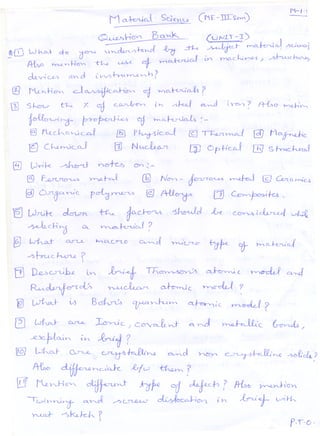 M-1.1
Material Science (ME-III Sem)
Question Bank (UNIT-I)
Q1 What do you understand by the subject material science?
Also mention the use of material in machines, structures,
devices and instruments?
2 Mention classification of materials?
3 Show the % of carbon in steel and iron? Also mention
following properties of materials :-
a Mechanical b Physical c Thermal d Magnetic
e Chemical f Nuclear g Optical h Structural
4 Write short notes on :-
a Ferrous metal b Non-ferrous metal c Ceramics
d Organic polymers e Alloys f Composites.
5 Write down the factors should be considered while
selecting a material?
6 What are macro and micro type of material
structure?
7 Describe in brief Thomson's atomic model and
Rutherford's nuclear atomic model?
8 What is Bohr's quantum atomic model?
9 What are Ionic, covalent and metallic bonds,
explain in brief?
10 What are crystalline and non crystalline solids?
Also differenciate b/w them?
11 Mention different type of defects? Also mention
Twinning and screw dislocation in brief with
neat sketch?
P.T.O.